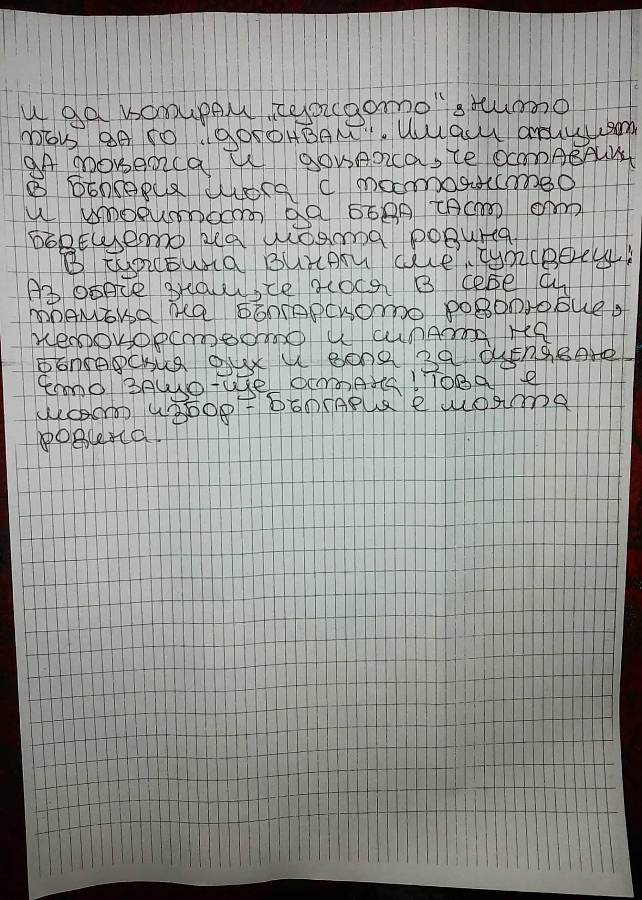 и да копирам „чуждото", нито
пък да го „догонвам". Имам амицията
да покажа и докажа, че оставайки
в България мога с постоянство
и упоритост да бъда част от
бъдещето на моята родина.
В чужбина винаги сме „чужденци".
Аз обаче знам, че нося в себе си
пламъка на българското родолюбие,
непокорството и силата на
българския дух и воля за оцеляване.
Ето защо - ще остана! Това е
моят избор - България е моята
родина.